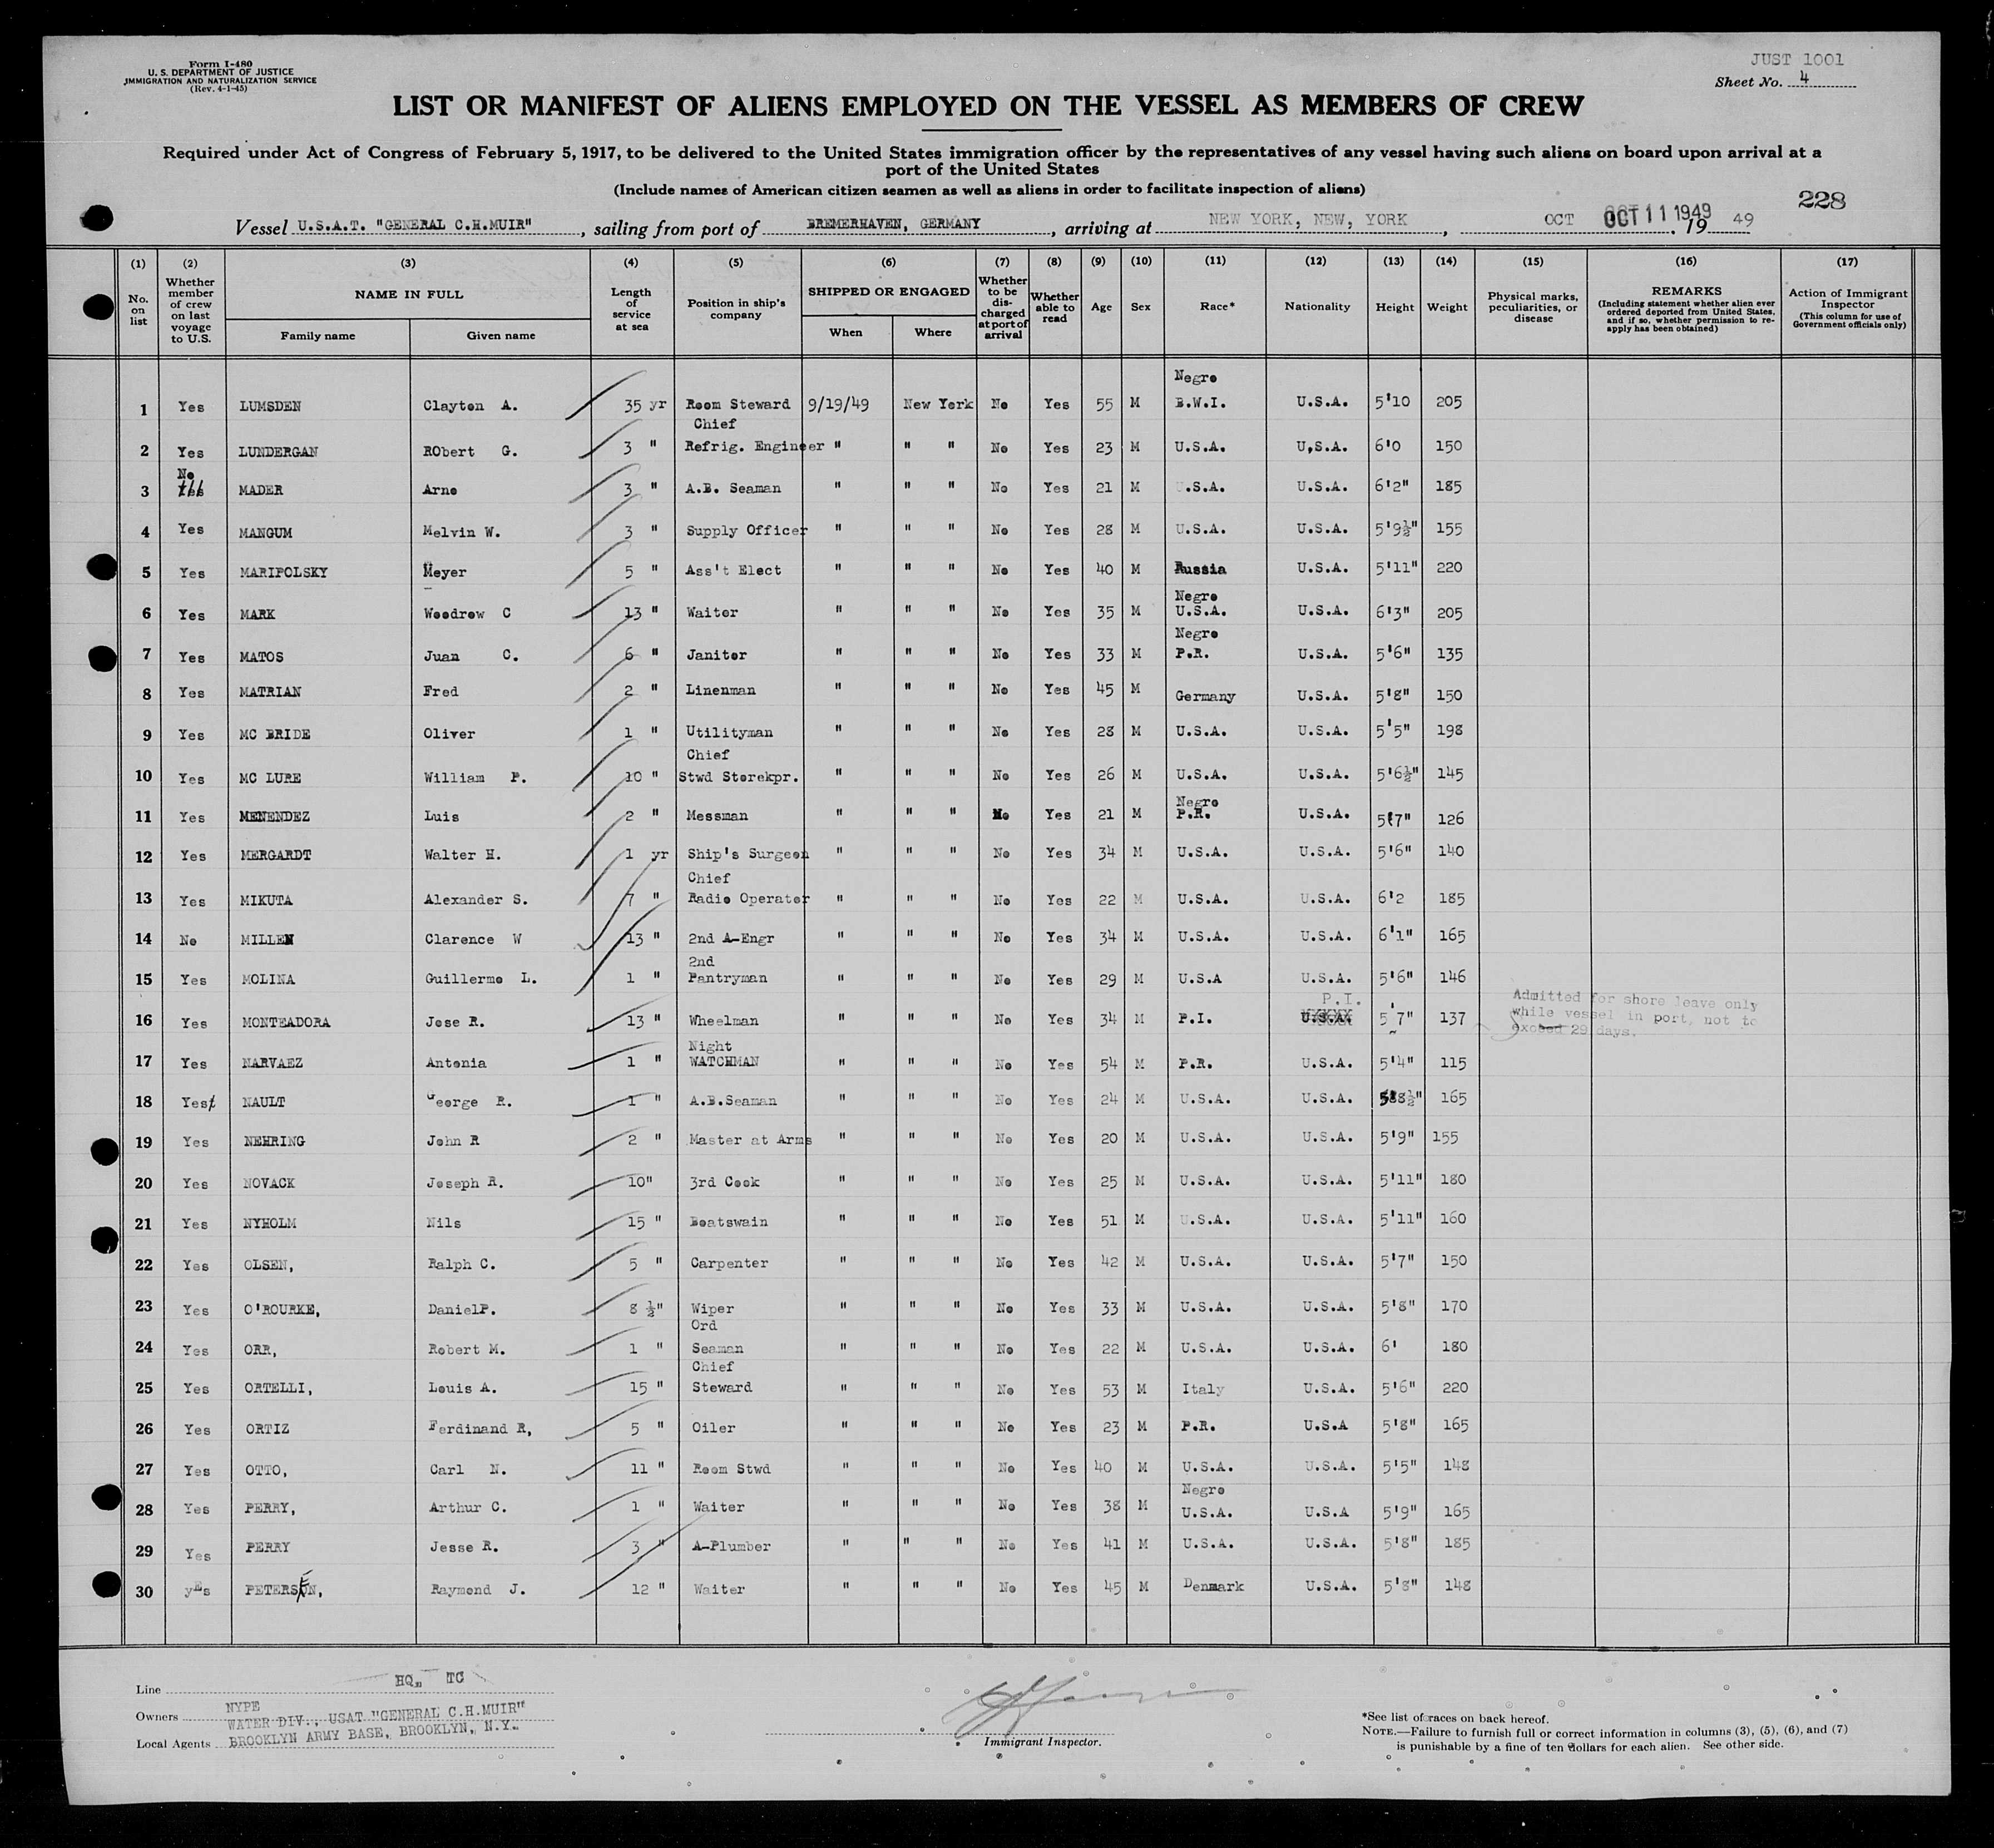 Form I-480
U. S. DEPARTMENT OF JUSTICE
IMMIGRATION AND NATURALIZATION SERVICE
(Rev. 4-1-45)
JUST 1001
Sheet No. 4
LIST OR MANIFEST OF ALIENS EMPLOYED ON THE VESSEL AS MEMBERS OF CREW
Required under Act of Congress of February 5, 1917, to be delivered to the United States immigration officer by the representatives of any vessel having such aliens on board upon arrival at a
port of the United States
(Include names of American citizen seamen as well as aliens in order to facilitate inspection of aliens)
228
Vessel U.S.A.T. "GENERAL C.H.MUIR", sailing from port of BREMERHAVEN, GERMANY, arriving at NEW YORK, NEW, YORK, OCT OCT 11 1949 , 19 49
(1) No. on list
(2) Whether member of crew on last voyage to U.S.
(3) NAME IN FULL Family name Given name
(4) Length of service at sea
(5) Position in ship's company
(6) SHIPPED OR ENGAGED When Where
(7) Whether to be discharged at port of arrival
(8) Whether able to read
(9) Age
(10) Sex
(11) Race*
(12) Nationality
(13) Height
(14) Weight
(15) Physical marks, peculiarities, or disease
(16) REMARKS (Including statement whether alien ever ordered deported from United States, and if so, whether permission to re-apply has been obtained)
(17) Action of Immigrant Inspector (This column for use of Government officials only)
1 Yes LUMSDEN Clayton A. 35 yr Room Steward 9/19/49 New York No Yes 55 M Negro B.W.I. U.S.A. 5'10 205
2 Yes LUNDERGAN RObert G. 3 " Chief Refrig. Engineer " " " No Yes 23 M U.S.A. U,S.A. 6'0 150
3 No MADER Arne 3 " A.B. Seaman " " " No Yes 21 M U.S.A. U.S.A. 6'2" 185
4 Yes MANGUM Melvin W. 3 " Supply Officer " " " No Yes 28 M U.S.A. U.S.A. 5'9½" 155
5 Yes MARIPOLSKY Meyer 5 " Ass't Elect " " " No Yes 40 M Russia U.S.A. 5'11" 220
6 Yes MARK Woodrow C 13 " Waiter " " " No Yes 35 M Negro U.S.A. U.S.A. 6'3" 205
7 Yes MATOS Juan C. 6 " Janitor " " " No Yes 33 M Negro P.R. U.S.A. 5'6" 135
8 Yes MATRIAN Fred 2 " Linenman " " " No Yes 45 M Germany U.S.A. 5'8" 150
9 Yes MC BRIDE Oliver 1 " Utilityman " " " No Yes 28 M U.S.A. U.S.A. 5'5" 198
10 Yes MC LURE William P. 10 " Chief Stwd Storekpr. " " " No Yes 26 M U.S.A. U.S.A. 5'6½" 145
11 Yes MENENDEZ Luis 2 " Messman " " " No Yes 21 M Negro P.R. U.S.A. 5'7" 126
12 Yes MERGARDT Walter H. 1 yr Ship's Surgeon " " " No Yes 34 M U.S.A. U.S.A. 5'6" 140
13 Yes MIKUTA Alexander S. 7 " Chief Radio Operator " " " No Yes 22 M U.S.A. U.S.A. 6'2 185
14 No MILLEN Clarence W 13 " 2nd A-Engr " " " No Yes 34 M U.S.A. U.S.A. 6'1" 165
15 Yes MOLINA Guillermo L. 1 " 2nd Pantryman " " " No Yes 29 M U.S.A U.S.A. 5'6" 146
16 Yes MONTEADORA Jose R. 13 " Wheelman " " " No Yes 34 M P.I. P.I. U.S.A. 5'7" 137 Admitted for shore leave only while vessel in port, not to exceed 29 days.
17 Yes NARVAEZ Antonia 1 " Night WATCHMAN " " " No Yes 54 M P.R. U.S.A. 5'4" 115
18 Yes NAULT George R. 1 " A.B.Seaman " " " No Yes 24 M U.S.A. U.S.A. 5'8½" 165
19 Yes NEHRING John R 2 " Master at Arms " " " No Yes 20 M U.S.A. U.S.A. 5'9" 155
20 Yes NOVACK Joseph R. 10" 3rd Cook " " " No Yes 25 M U.S.A. U.S.A. 5'11" 180
21 Yes NYHOLM Nils 15 " Boatswain " " " No Yes 51 M U.S.A. U.S.A. 5'11" 160
22 Yes OLSEN, Ralph C. 5 " Carpenter " " " No Yes 42 M U.S.A. U.S.A. 5'7" 150
23 Yes O'ROURKE, DanielP. 8 ½" Wiper " " " No Yes 33 M U.S.A. U.S.A. 5'8" 170
24 Yes ORR, Robert M. 1 " Ord Seaman " " " No Yes 22 M U.S.A. U.S.A. 6' 180
25 Yes ORTELLI, Louis A. 15 " Chief Steward " " " No Yes 53 M Italy U.S.A. 5'6" 220
26 Yes ORTIZ Ferdinand R, 5 " Oiler " " " No Yes 23 M P.R. U.S.A 5'8" 165
27 Yes OTTO, Carl N. 11 " Room Stwd " " " No Yes 40 M U.S.A. U.S.A. 5'5" 148
28 Yes PERRY, Arthur C. 1 " Waiter " " " No Yes 38 M Negro U.S.A. U.S.A 5'9" 165
29 Yes PERRY Jesse R. 3 " A-Plumber " " " No Yes 41 M U.S.A. U.S.A. 5'8" 185
30 yEs PETERSEN, Raymond J. 12 " Waiter " " " No Yes 45 M Denmark U.S.A. 5'8" 148
Line HQ. TC
Owners NYPE
WATER DIV., USAT "GENERAL C.H.MUIR"
Local Agents BROOKLYN ARMY BASE, BROOKLYN, N.Y.
Immigrant Inspector.
*See list of races on back hereof.
NOTE.—Failure to furnish full or correct information in columns (3), (5), (6), and (7)
is punishable by a fine of ten dollars for each alien. See other side.